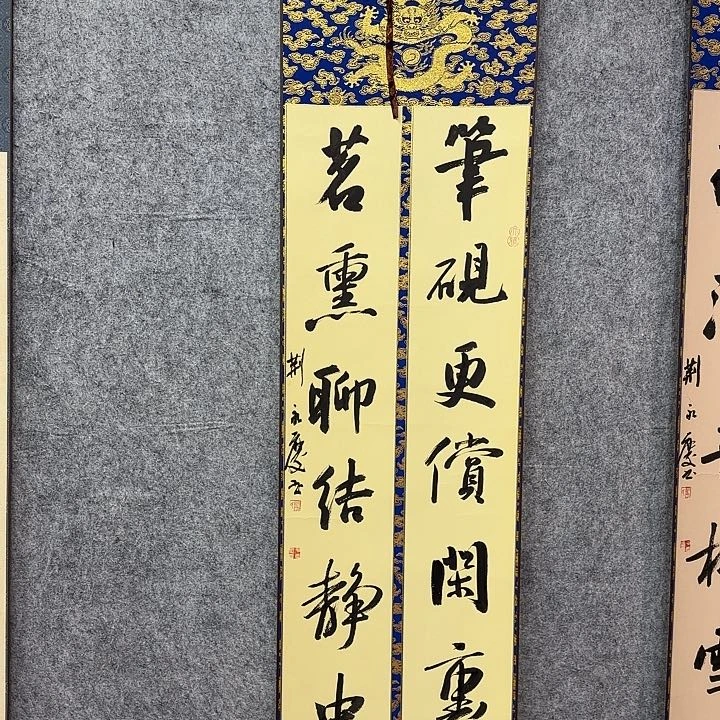 筆硯更償閑裏
茗熏聊結靜中
荆永慶书
荆永慶书